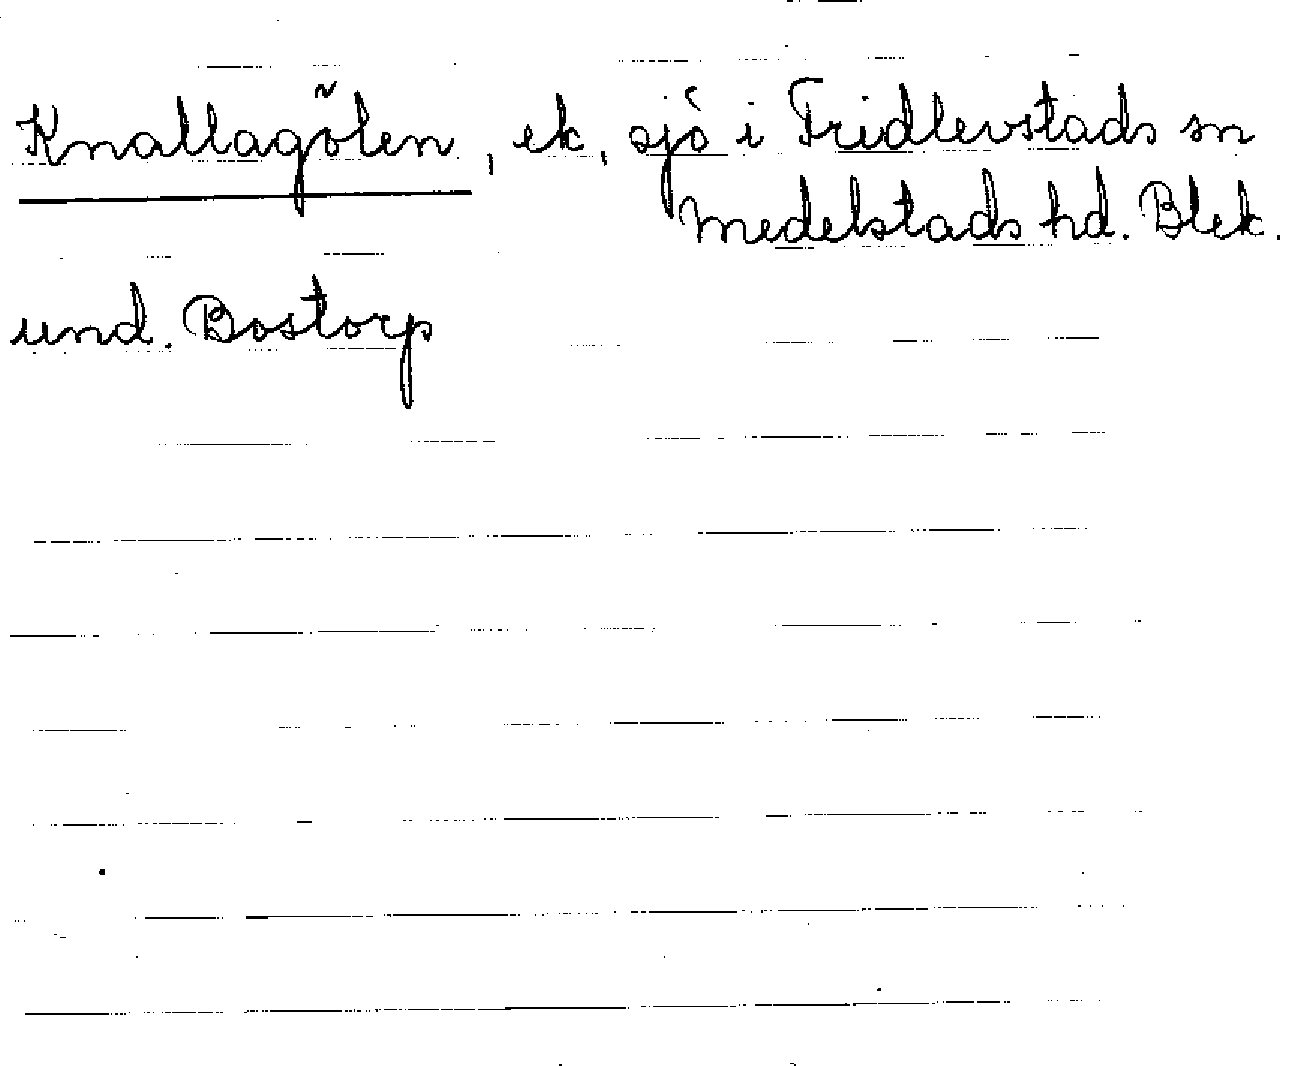 Knallagölen, ek, sjö i Fridlevstads sn
Medelstads hd. Blek.
und. Bostorp